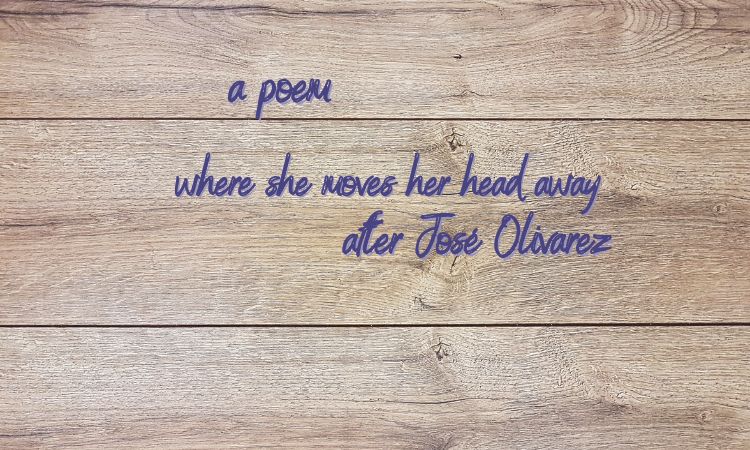 a poem
where she moves her head away
after José Olivarez